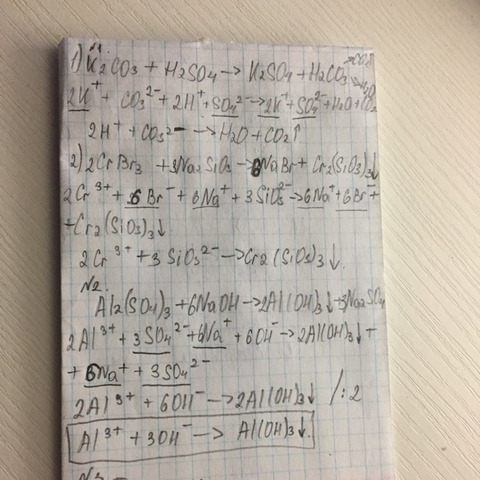 №1.
1) K2CO3 + H2SO4 → K2SO4 + H2CO3 →CO2↑ →H2O
2K⁺ + CO3²⁻ + 2H⁺ + SO4²⁻ → 2K⁺ + SO4²⁻ + H2O + CO2
2H⁺ + CO3²⁻ → H2O + CO2↑
2) 2CrBr3 + 3Na2SiO3 → 6NaBr + Cr2(SiO3)3↓
2Cr³⁺ + 6Br⁻ + 6Na⁺ + 3SiO3²⁻ → 6Na⁺ + 6Br⁻ +
+ Cr2(SiO3)3↓
2Cr³⁺ + 3SiO3²⁻ → Cr2(SiO3)3↓.
№2.
Al2(SO4)3 + 6NaOH → 2Al(OH)3↓ + 3Na2SO4
2Al³⁺ + 3SO4²⁻ + 6Na⁺ + 6OH⁻ → 2Al(OH)3↓ +
+ 6Na⁺ + 3SO4²⁻
2Al³⁺ + 6OH⁻ → 2Al(OH)3↓ /:2
Al³⁺ + 3OH⁻ → Al(OH)3↓.
№3